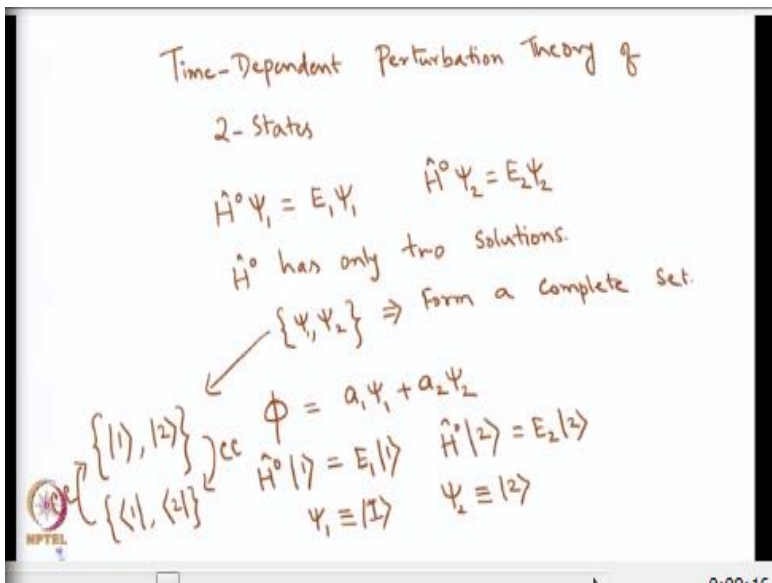 Time-Dependent Perturbation Theory of
2-States
Ĥ⁰Ψ₁ = E₁Ψ₁ Ĥ⁰Ψ₂ = E₂Ψ₂
Ĥ⁰ has only two solutions.
{Ψ₁,Ψ₂} ⇒ Form a complete set.
ϕ = a₁Ψ₁ + a₂Ψ₂
{|1⟩, |2⟩} cc Ĥ⁰|1⟩ = E₁|1⟩ Ĥ⁰|2⟩ = E₂|2⟩
cc {⟨1|, ⟨2|} Ψ₁ ≡ |1⟩ Ψ₂ ≡ |2⟩
NPTEL